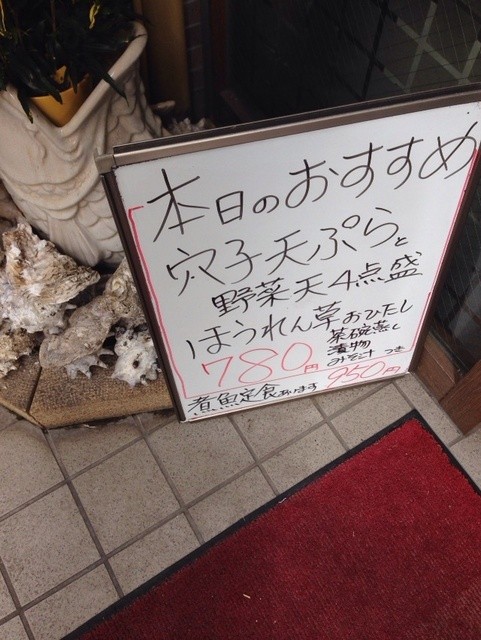 本日のおすすめ
穴子天ぷらと
野菜天4点盛
ほうれん草おひたし
茶碗蒸し
漬物
みそ汁 つき
780円
煮魚定食あります 950円